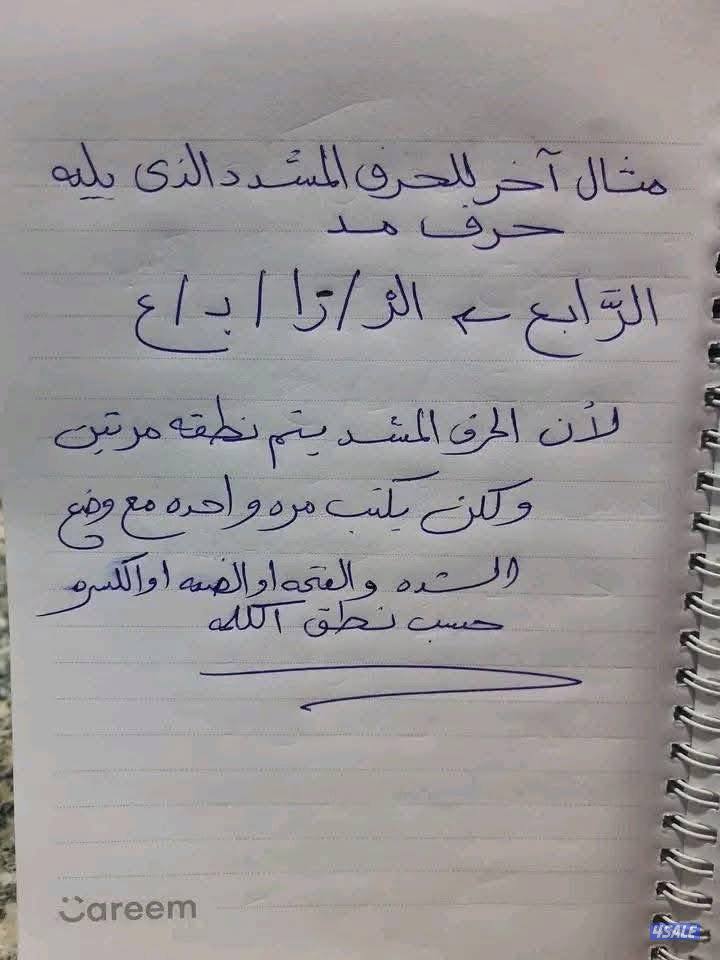 مثال آخر للحرف المشدد الذى يليه
حرف مد
الرَّابع ← الرْ / رَا / بـ / ع
لأن الحرف المشدد يتم نطقه مرتين
ولكن يكتب مره واحده مع وضع
الشده والفتحه او الضمه او الكسره
حسب نطق الكلمه
Careem
4SALE